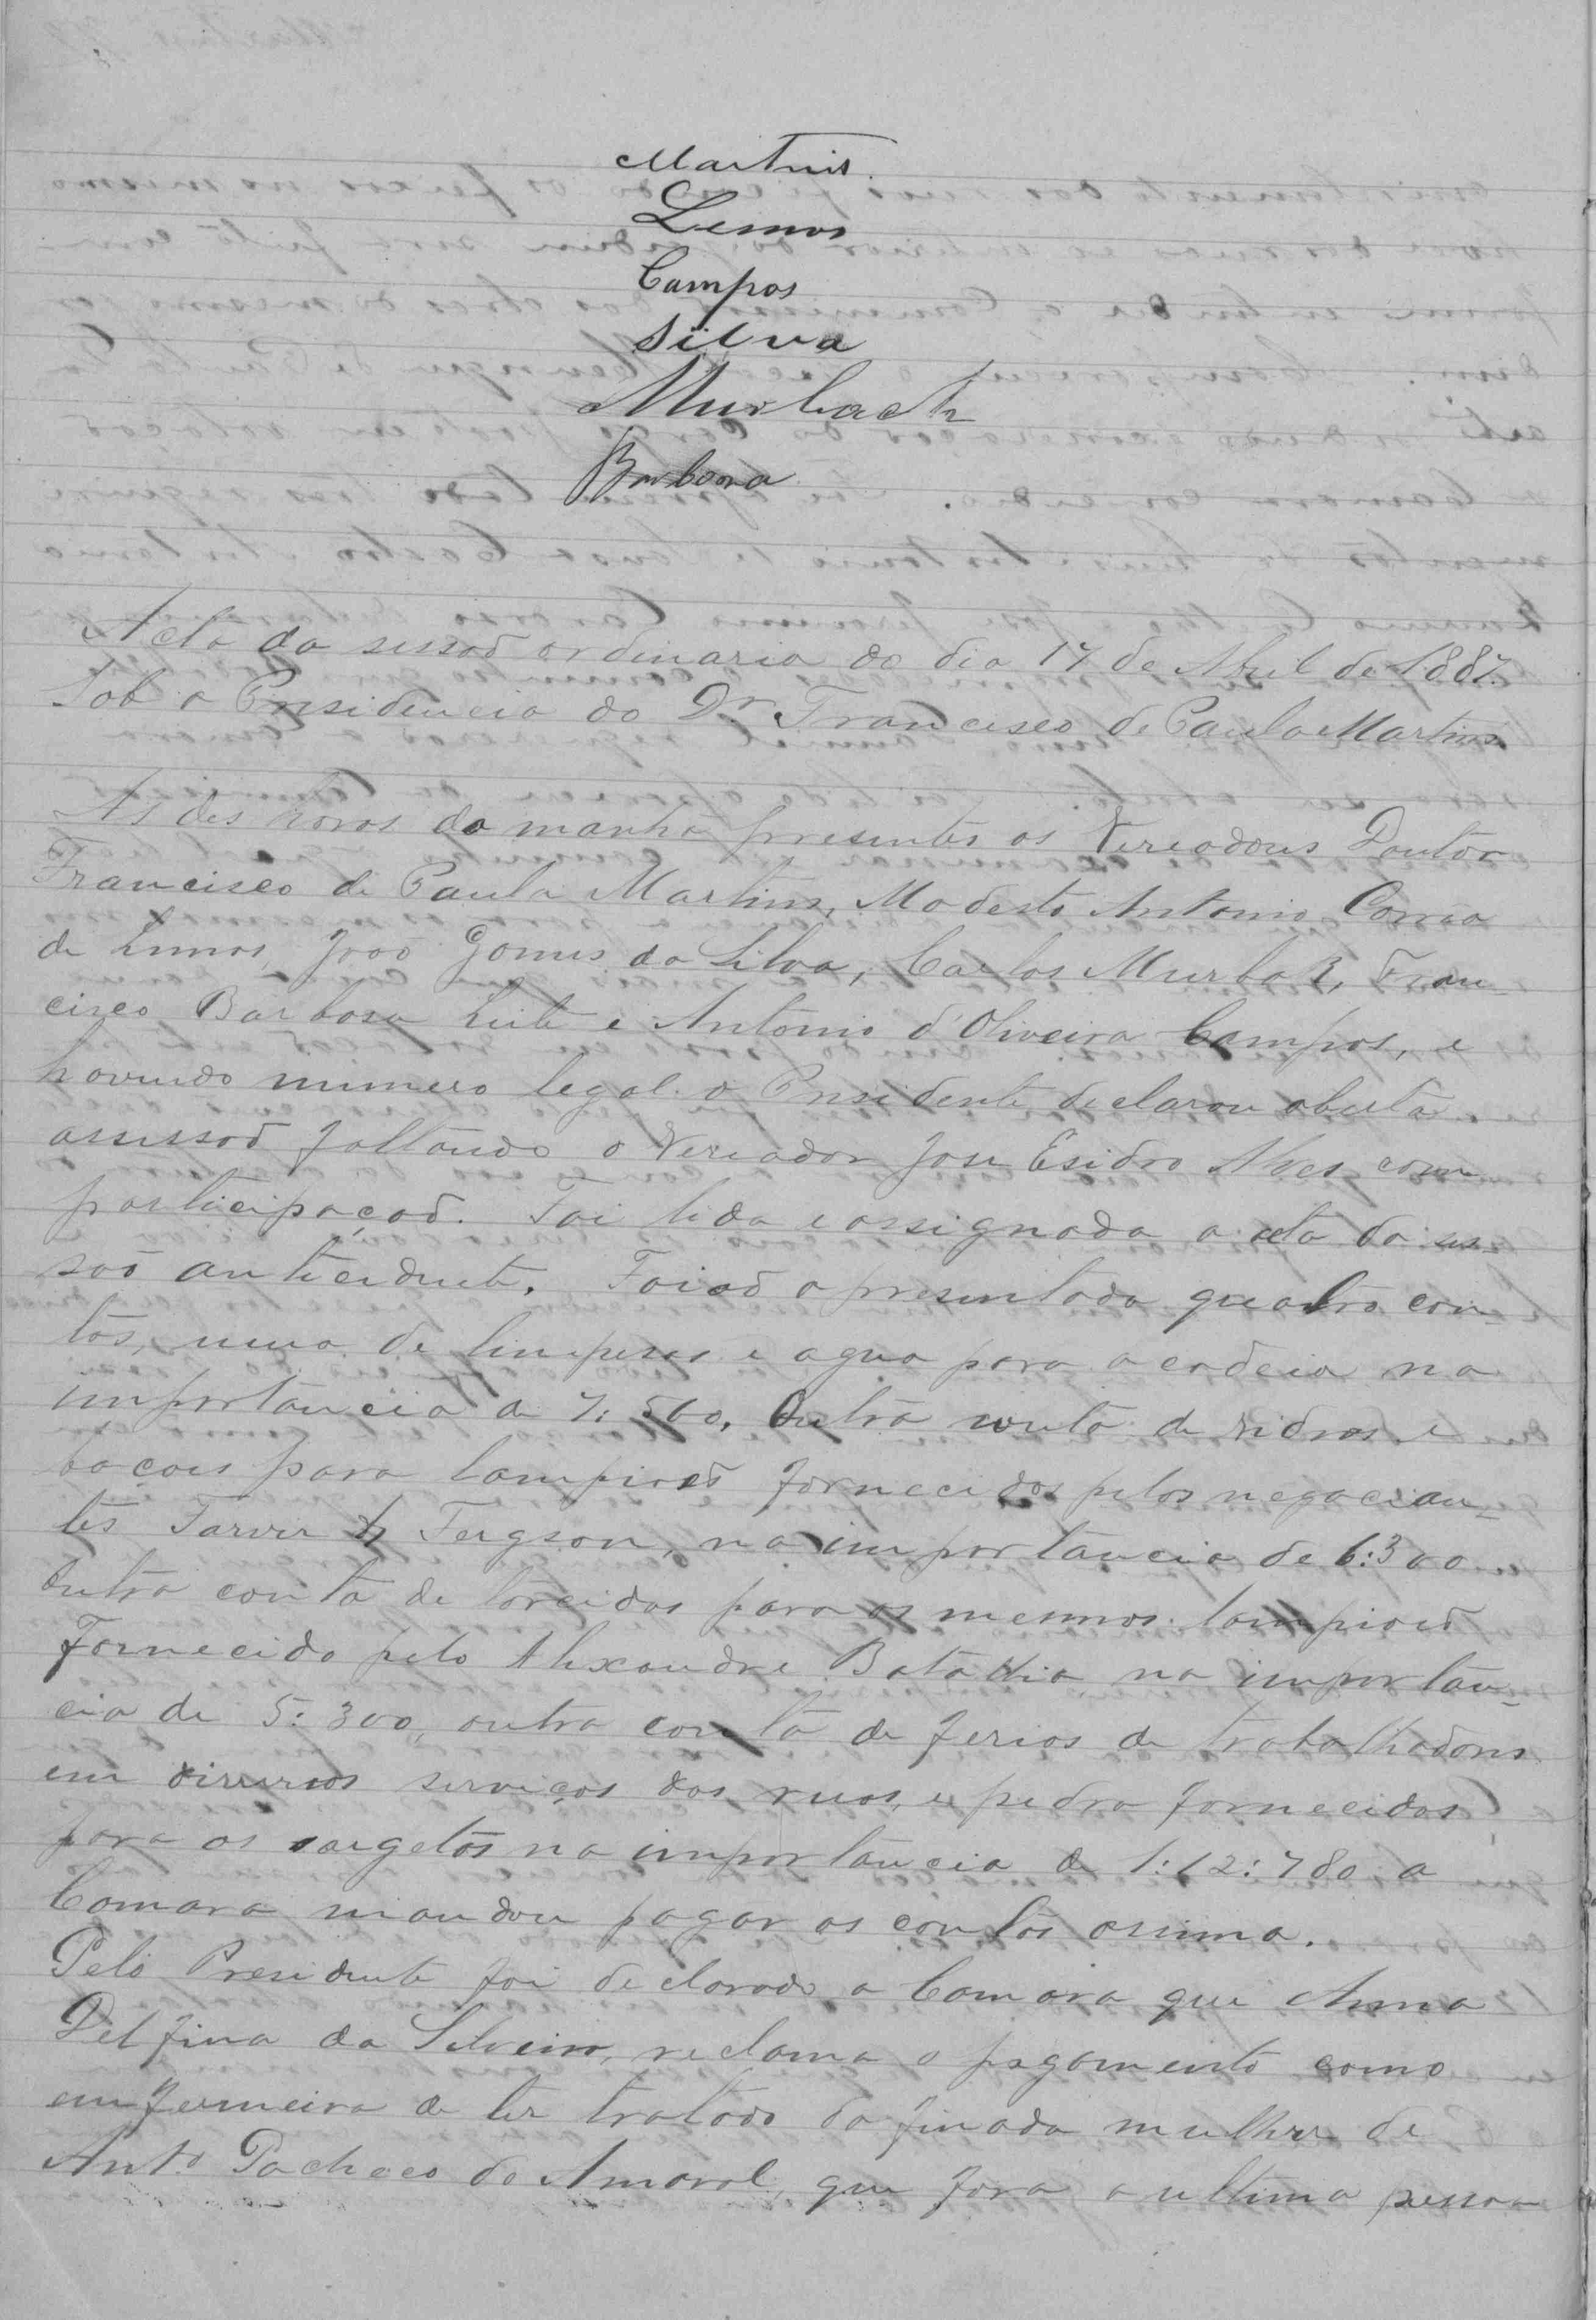 Martins
Lemos
Campos
Silva
Murbach
Barbosa
Acta da sessaõ ordinaria do dia 17 de Abril de 1887.
Sob a Presidencia do Dr Francisco de Paula Martins
As des horas da manhã presentes os Vereadores Doutor
Francisco de Paula Martins, Modesto Antonio Corrêa
de Lemos, Joaõ Gomes da Silva, Carlos Murbak, Fran-
cisco Barbosa Leite e Antonio d'Oliveira Campos, e
havendo numero legal o Presidente declarou aberta
assessaõ faltando o Vereador Jose Esidro Alves com
participaçaõ. Foi lida e assignada a acta da ses-
saõ antecedente. Foiaõ apresentada quatro con-
tas, uma de limpesas e agua para a cadeia na
importancia de 7:500, Outra conta de vidros e
bocaes para lampioẽs fornecidos pelos negocian-
tes Tarver & Fergson, na importancia de 6:300
outra conta de torcidas para os mesmos lampioẽs
Fornecida pelo Alexandre Batadia na importan-
cia de 5:300, outra conta de ferias de trabalhadores
em diversos serviços das ruas, e pedra fornecidas
para as sargetas na importancia de 1:12:780 a
Camara mandou pagar as contas assima.
Pelo Presidente foi declarado a Camara que Anna
Delfina da Silveira, reclama o pagamento como
enfermeira de ter tratado da finada mulher de
Anto. Pacheco do Amaral, que fora a ultima pessoa